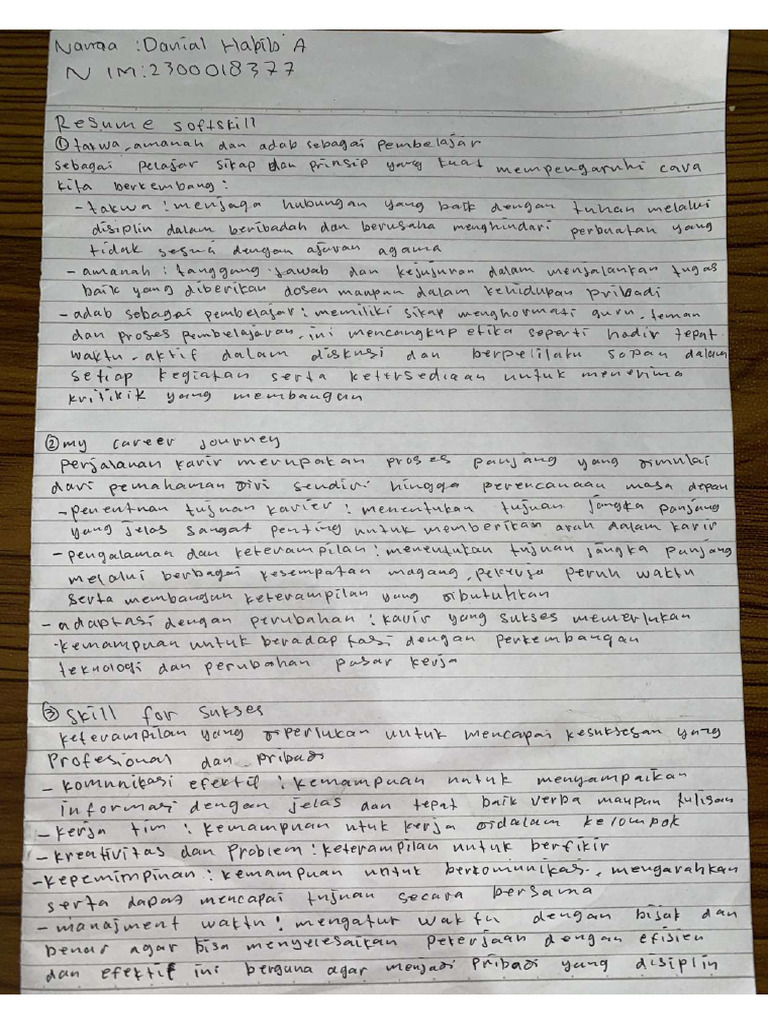 Nama : Danial Habib A
NIM : 2300018377
Resume softskill
① takwa, amanah dan adab sebagai pembelajar
sebagai pelajar sikap dan prinsip yang kuat mempengaruhi cara
kita berkembang :
- takwa : menjaga hubungan yang baik dengan tuhan melalui
disiplin dalam beribadah dan berusaha menghindari perbuatan yang
tidak sesuai dengan ajaran agama
- amanah : tanggung jawab dan kejujuran dalam menjalankan tugas
baik yang diberikan dosen maupun dalam kehidupan pribadi
- adab sebagai pembelajar : memiliki sikap menghormati guru, teman
dan proses pembelajaran, ini mencangkup etika seperti hadir tepat
waktu, aktif dalam diskusi dan berpelilaku sopan dalam
setiap kegiatan serta ketersediaan untuk menerima
kritikik yang membangun
② my career journey
perjalanan karir merupakan proses panjang yang dimulai
dari pemahaman diri sendiri hingga perencanaan masa depan
- penentuan tujuan karier : menentukan tujuan jangka panjang
yang jelas sangat penting untuk memberikan arah dalam karir
- pengalaman dan keterampilan : menentukan tujuan jangka panjang
melalui berbagai kesempatan magang, pekerja penuh waktu
serta membangun keterampilan yang dibutuhkan
- adaptasi dengan perubahan : karir yang sukses memerlukan
kemampuan untuk beradaptasi dengan perkembangan
teknologi dan perubahan pasar kerja
③ skill for sukses
keterampilan yang diperlukan untuk mencapai kesuksesan yang
Profesional dan pribadi
- komunikasi efektif : kemampuan untuk menyampaikan
informasi dengan jelas dan tepat baik verba maupun tulisan
- kerja tim : kemampuan utuk kerja didalam kelompok
- kreativitas dan Problem : keterampilan untuk berfikir
- kepemimpinan : kemampuan untuk berkomunikasi, mengarahkan
serta dapat mencapai tujuan secara bersama
- manajment waktu : mengatur waktu dengan bijak dan
benar agar bisa menyelesaikan pekerjaan dengan efisien
dan efektif ini berguna agar menjadi pribadi yang disiplin